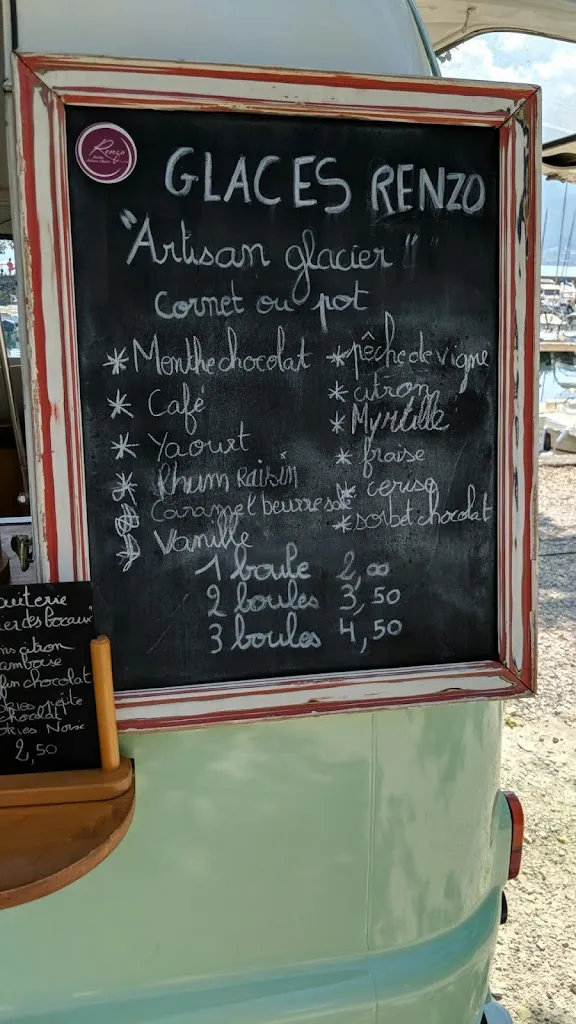 Renzo
GLACES RENZO
"Artisan glacier"
Cornet ou pot
* Menthe chocolat
* Café
* Yaourt
* Rhum Raisin
* Caramel beurre salé
* Vanille
* pêche de vigne
* citron
* Myrtille
* fraise
* cerise
* sorbet chocolat
1 boule 2,00
2 boules 3,50
3 boules 4,50
citron
chocolat
chocolat
Noix
2,50